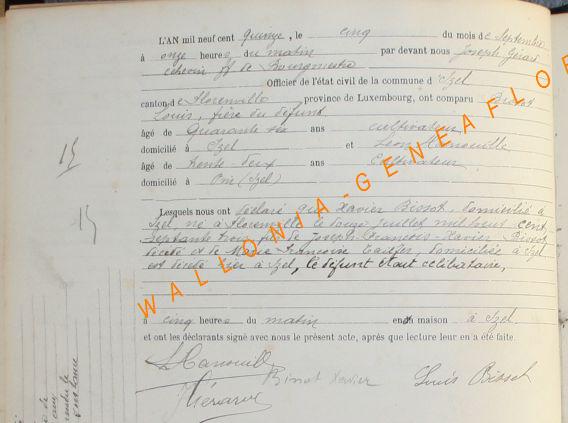 L'AN mil neuf cent quinze, le cinq du mois de Septembre
à onze heures du matin par devant nous Joseph Gérard
échevin ff de Bourgmestre
Officier de l'état civil de la commune d'Izel
canton de Florenville province de Luxembourg, ont comparu Bissot
Louis, frère du défunt
âgé de Quarante six ans cultivateur
domicilié à Izel et Léon Hanouille
âgé de trente deux ans Cultivateur
domicilié à (Izel)
15
Lesquels nous ont déclaré que Xavier Bissot, domicilié à
Izel, né à Florenville le juillet mil huit cent
septante trois, fils de Joseph François Xavier Bissot
décédé et de Marie Françoise domiciliée à Izel
est décédé hier à Izel, le défunt était célibataire,
à cinq heures du matin en maison à Izel
et ont les déclarants signé avec nous le présent acte, après que lecture leur en a été faite.
LHanouille
Bissot Xavier
Louis Bissot
JGérard
WALLONIA-GENEAFLOR